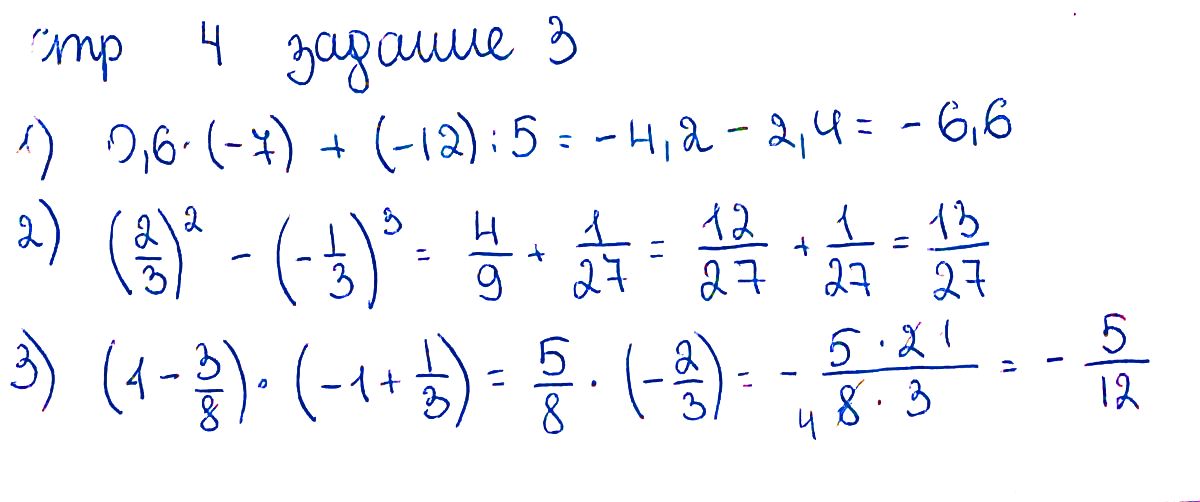 стр 4 задание 3
1) 0,6 · (-7) + (-12) : 5 = -4,2 - 2,4 = -6,6
2) (2/3)² - (-1/3)³ = 4/9 + 1/27 = 12/27 + 1/27 = 13/27
3) (1 - 3/8) · (-1 + 1/3) = 5/8 · (-2/3) = - 5 · 2 1 / 4 8 · 3 = - 5/12